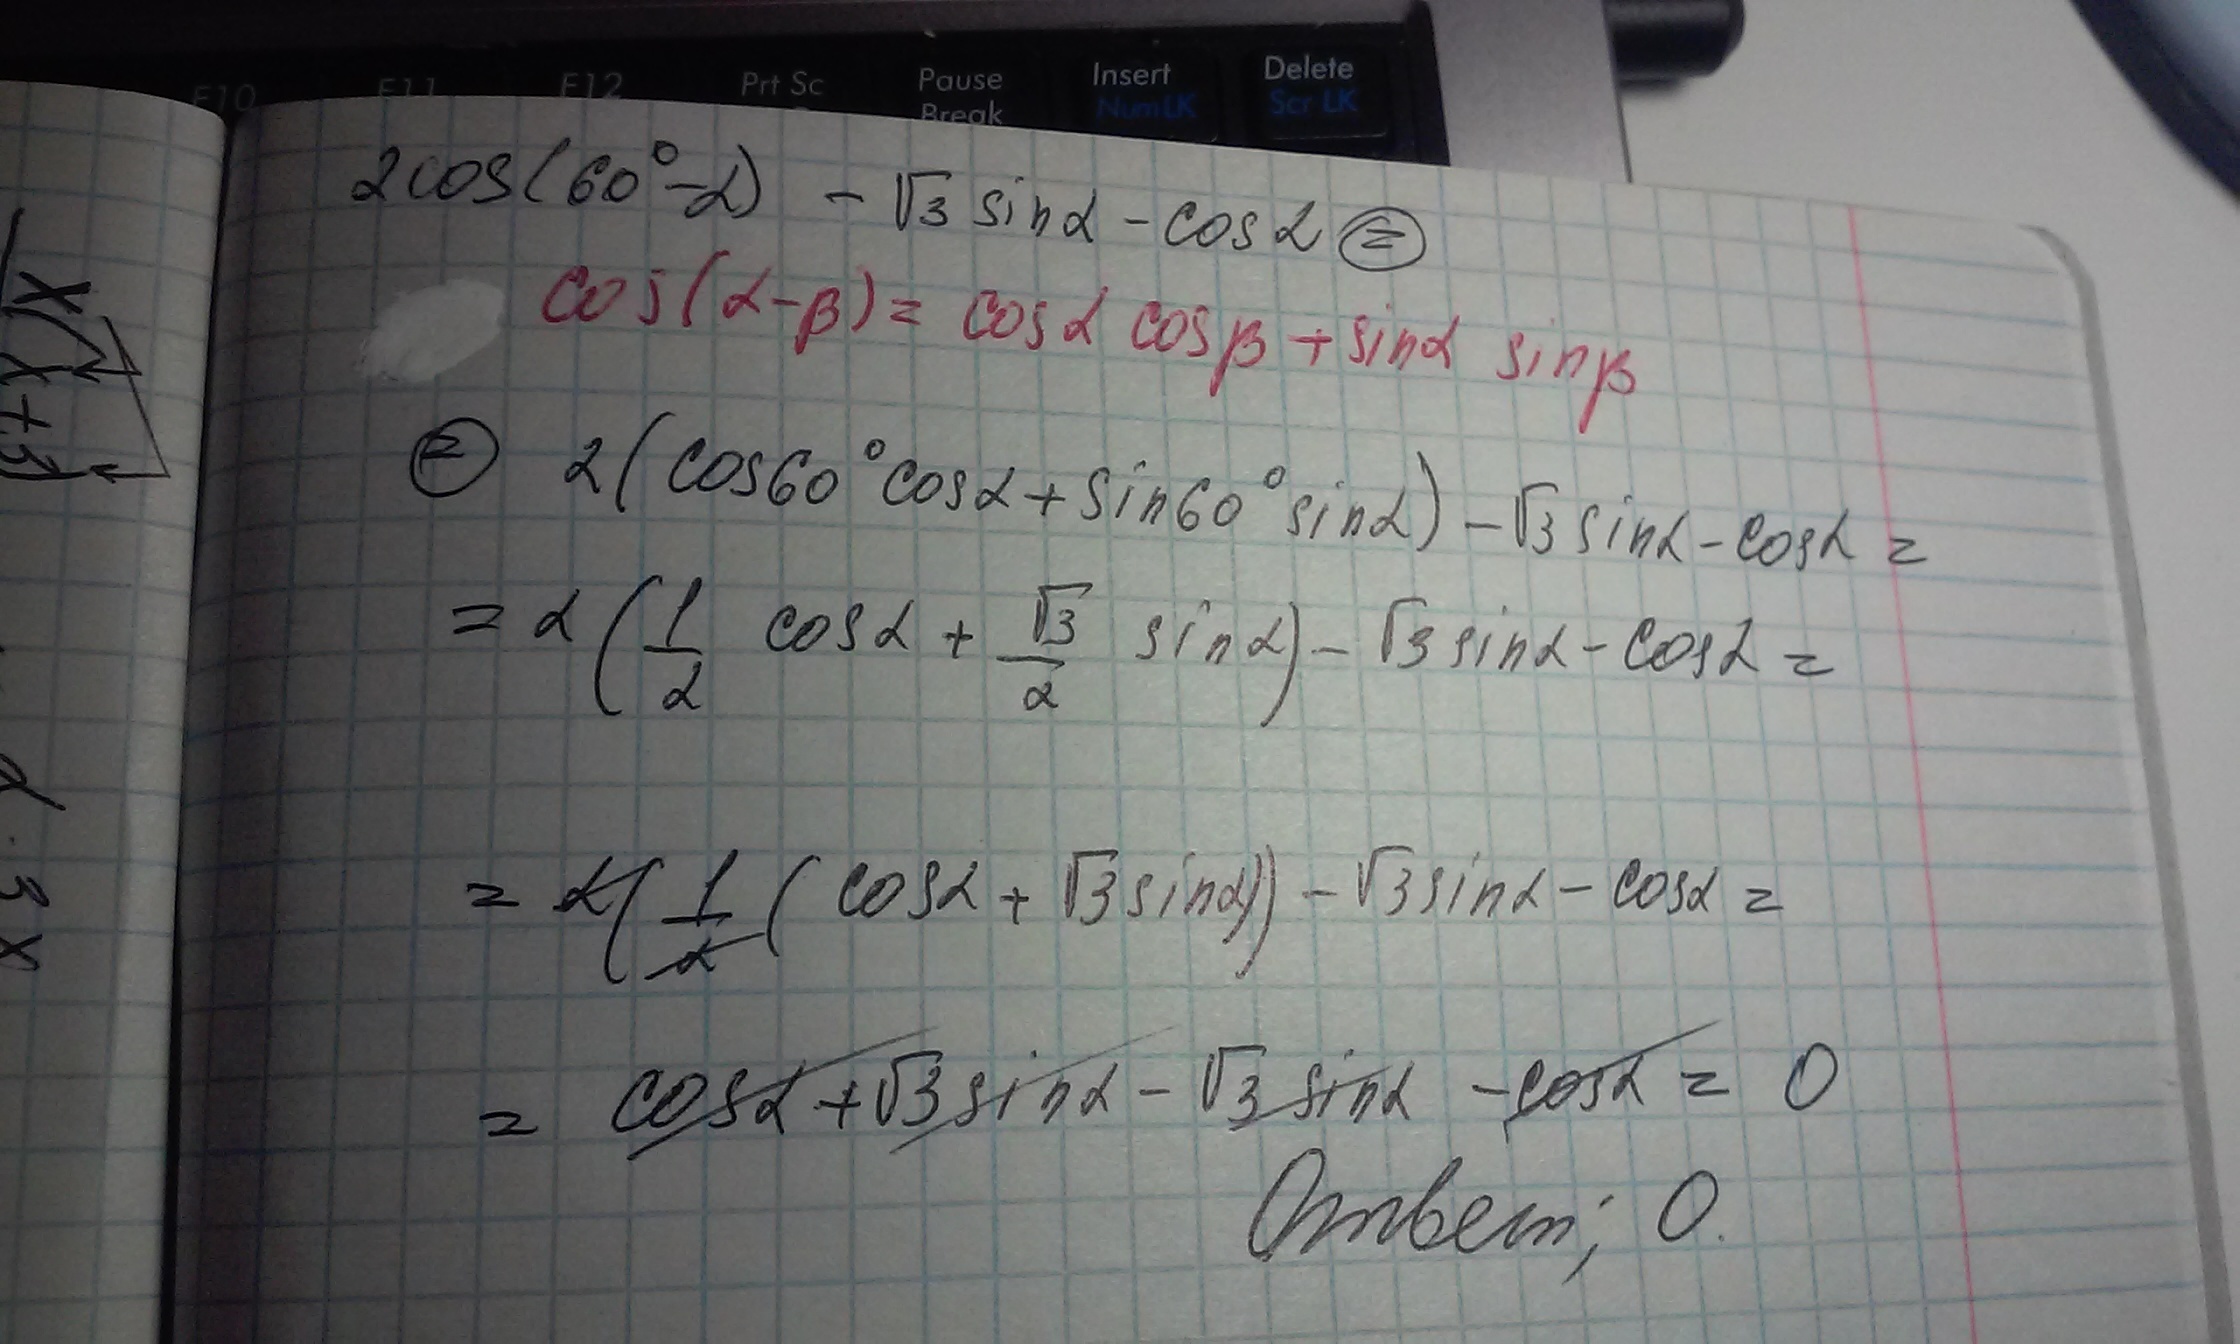 F10 F11 F12 Prt Sc Pause Break Insert NumLK Delete Scr LK
2cos(60°-α) - √3 sinα - cosα =
cos(α-β) = cosα cosβ + sinα sinβ
= 2(cos60°cosα + sin60°sinα) - √3 sinα - cosα =
= 2(1/2 cosα + √3/2 sinα) - √3 sinα - cosα =
= 2(1/2(cosα + √3 sinα)) - √3 sinα - cosα =
= cosα + √3 sinα - √3 sinα - cosα = 0
Ответ; 0.